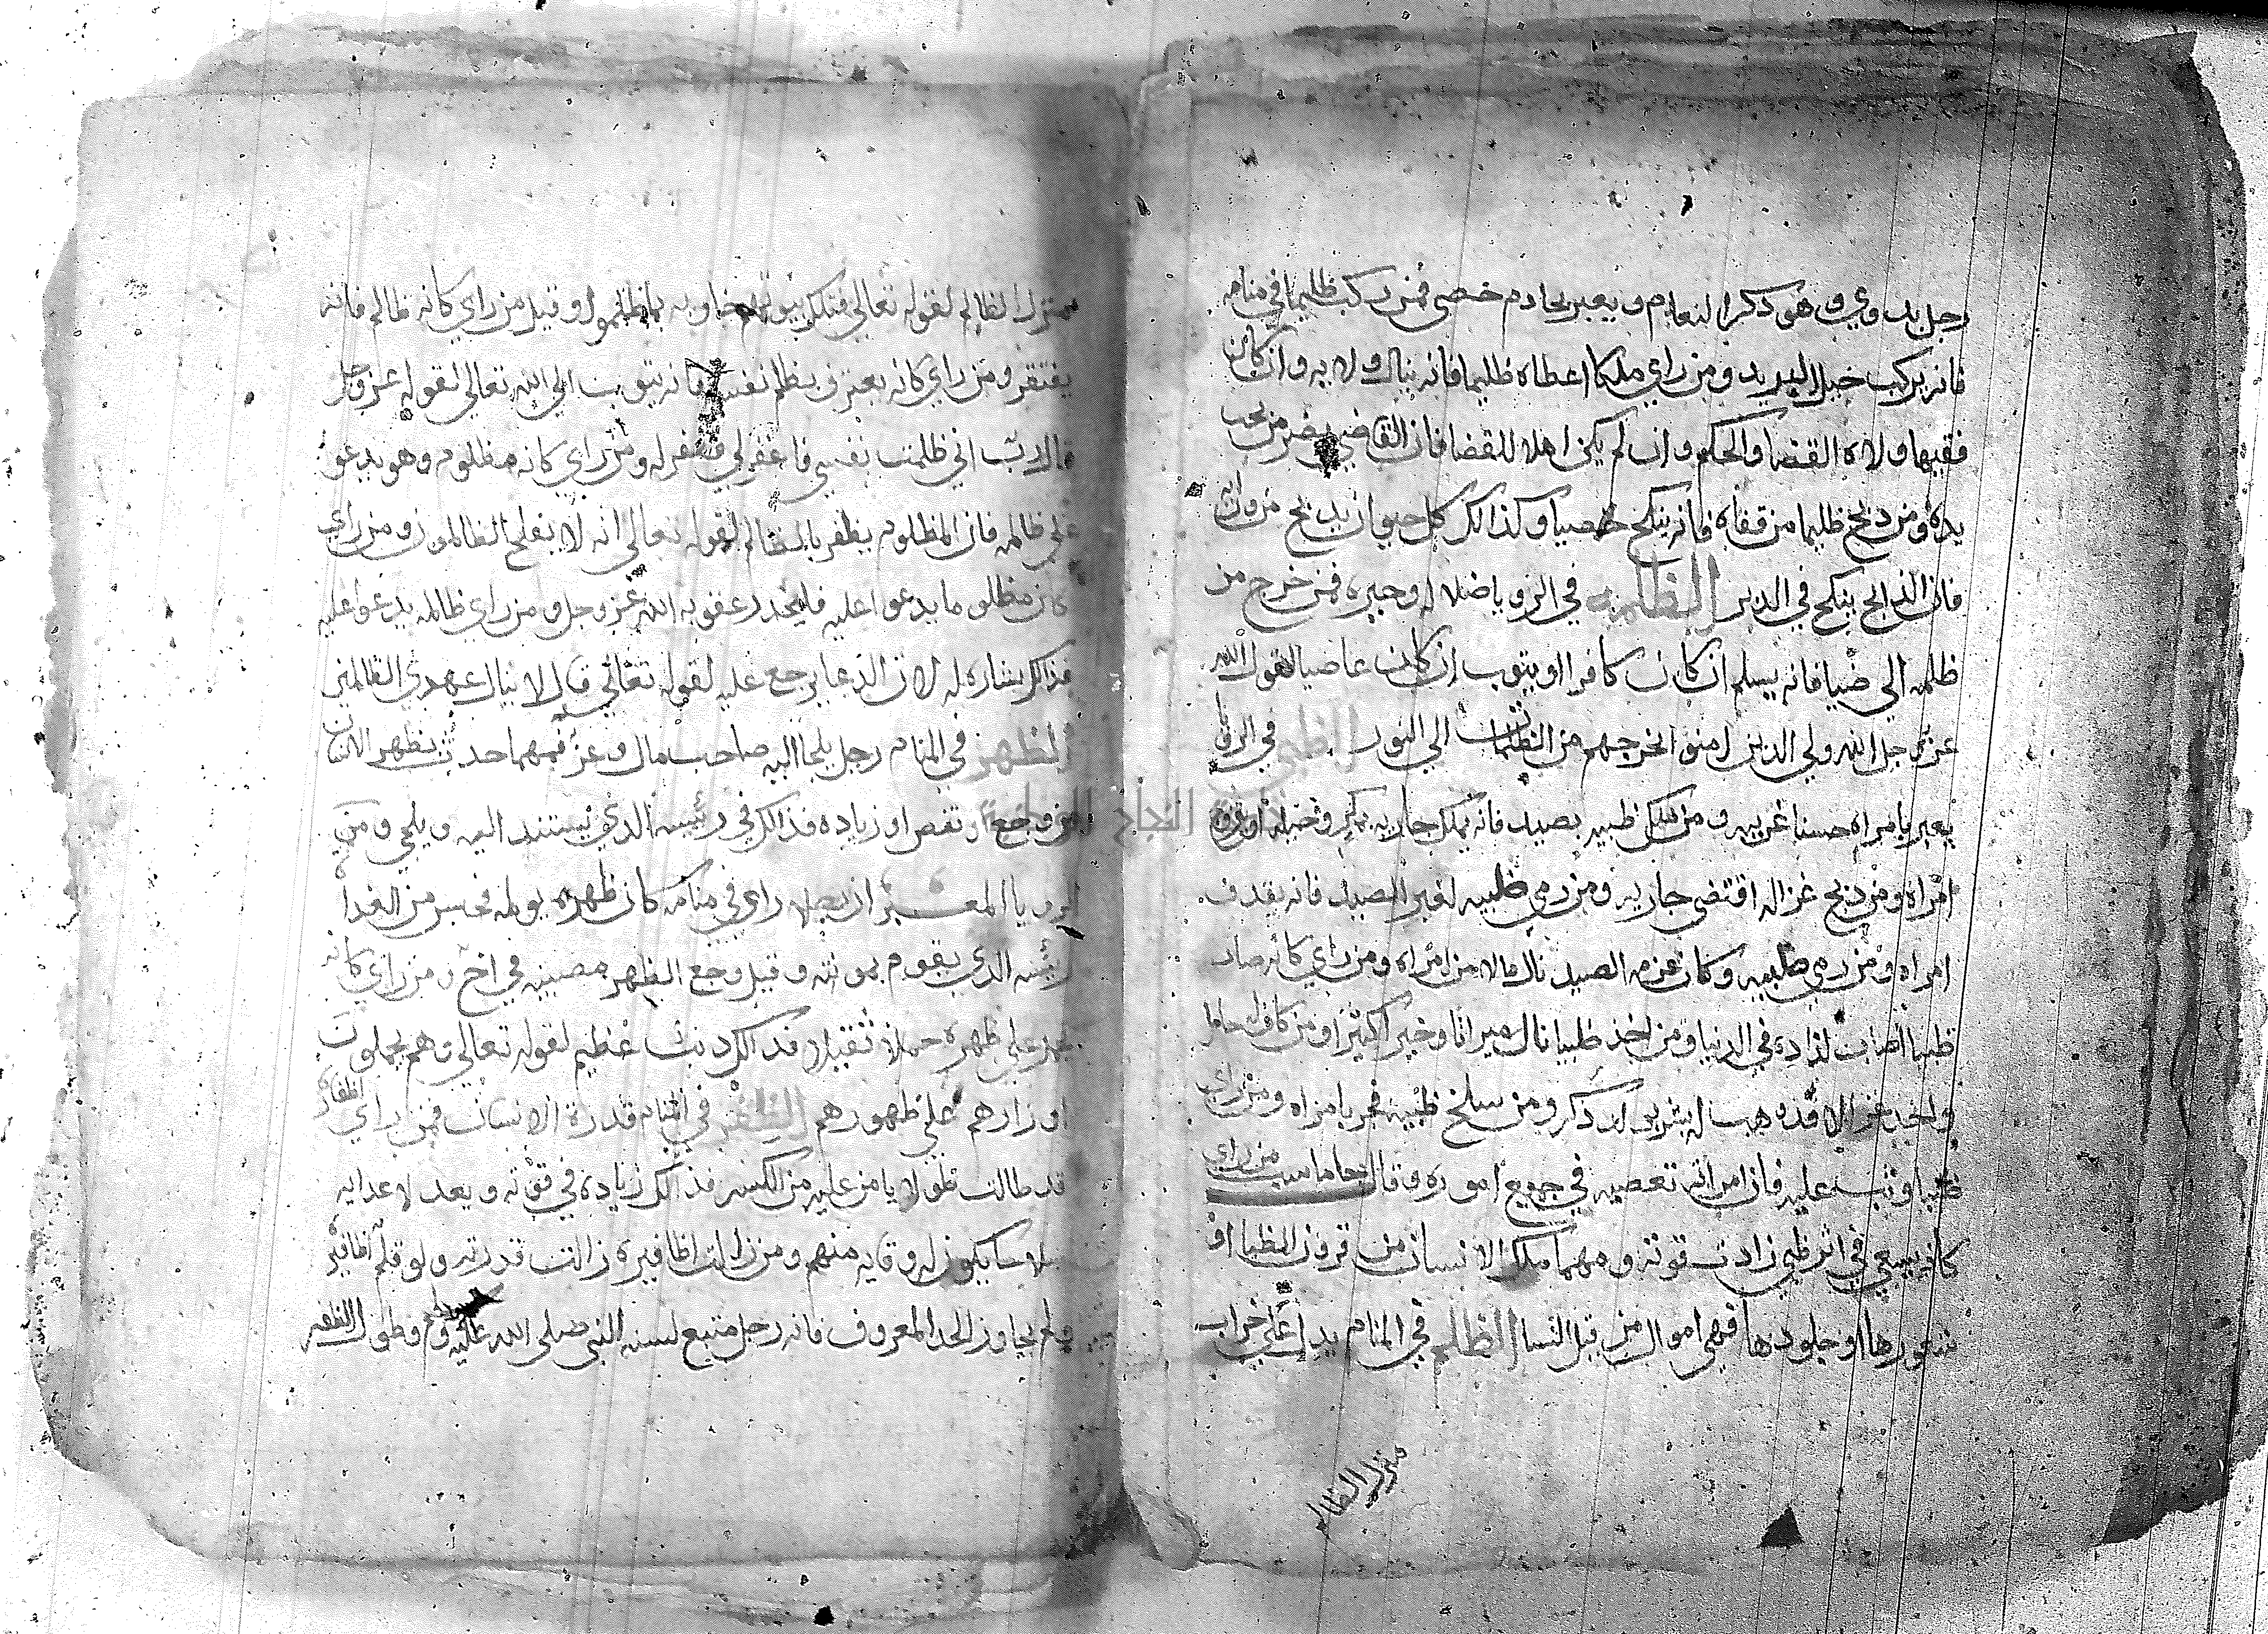 رجل بدوي وهو ذكر النعام ويعبر بخادم خصي فمن ركب ظليما في منامه
فانه يركب خيل البريد ومن راي ملكا اعطاه ظليما فانه ينال ولايه وان كان
فقيها ولاه القضا والحكم وان لم يكن اهلا للقضا فان القاضي من تحت
يده ومن ذبح ظليما من قفاه فانه ينكح خصيا وكذالك كل حيوان يذبح من ورائه
فان الذابح ينكح في الدبر الظلمه في الرويا ضلاله وحيره فمن خرج من
ظلمه الي ضيا فانه يسلم ان كان كافرا او يتوب ان كان عاصيا لقول الله
عز وجل الله ولي الذين امنو يخرجهم من الظلمات الي النور الظبي في الرويا
يعبر بامراه حسنا غريبه ومن ملك ظبيه بصيد فانه يملك جاريه بمكر وخديعه او يتزوج
امراه ومن ذبح غزاله اقتضي جاريه ومن رمي ظبيه لغير الصيد فانه يقذف
امراه ومن رمي ظبيه وكان عزمه الصيد نال مالا من امراه ومن راي كانه صار
ظبيا اصاب لذاذه في الدنيا ومن اخذ ظبيا نال ميراثا وخيرا كثيرا ومن كان له حامل
واخذ غزالا فده هبه له يبشر بولد ذكر ومن سلخ ظبيه فجر بامراه ومن راي
ظبيا وثب عليه فان امراته تعصيه في جميع اموره وقال جاماسب من راي
كانه يسعي في اثر ظبي زادت قوته ومهما ملك الانسان من قرون الظبا او
شعورها او جلودها فهي اموال من قبل النسا الظلم في المنام يدل علي خراب
منزل الظالم
منزل الظالم لقوله تعالي فتلك بيوتهم خاويه بما ظلموا وقيل من راي كانه ظالم فانه
يفتقر ومن راي كانه يعترف بظلم نفسه فانه يتوب الي الله تعالي لقوله عز وجل
قال رب اني ظلمت نفسي فاغفر لي فغفر له ومن راي كانه مظلوم وهو يدعو
علي ظالمه فان المظلوم يظفر بالظالم لقوله تعالي انه لا يفلح الظالمون ومن راي
كان مظلوما يدعوا عليه فليحذر عقوبه الله عز وجل ومن راي ظالمه يدعوا عليه
فذالك بشاره له لان الدعا يرجع عليه لقوله تعالي قال لا ينال عهدي الظالمين
الظهر في المنام رجل يلجا اليه صاحب مال وعز فمهما حدث بظهر الانسان
من وجع او نقص او زياده فذالك في رئيسه الذي يستند اليه ويلجي ومن
الرويا المعبره ان رجلا راي في منامه كان ظهره يولمه فحبس من الغدا
رئيسه الذي يقوم بموته وقيل وجع الظهر مصيبه في اخ ومن راي كانه
يحمل علي ظهره حملا ثقيلا فذالك دنب عظيم لقوله تعالي وهم يحملون
اوزارهم علي ظهورهم الظفر في المنام قدرة الانسان فمن راي اظفاره
قد طالت طولا يامن عليه من الكسر فذالك زياده في قوته ويعد لاعدايه
سلاحا يكون له وقايه منهم ومن زالت اظافيره زالت قدرته ولو قلم اظافيره
ولم يجاوز الحد المعروف فانه رجل متبع لسنه النبي صلي الله عليه وسلم وطول الظفر